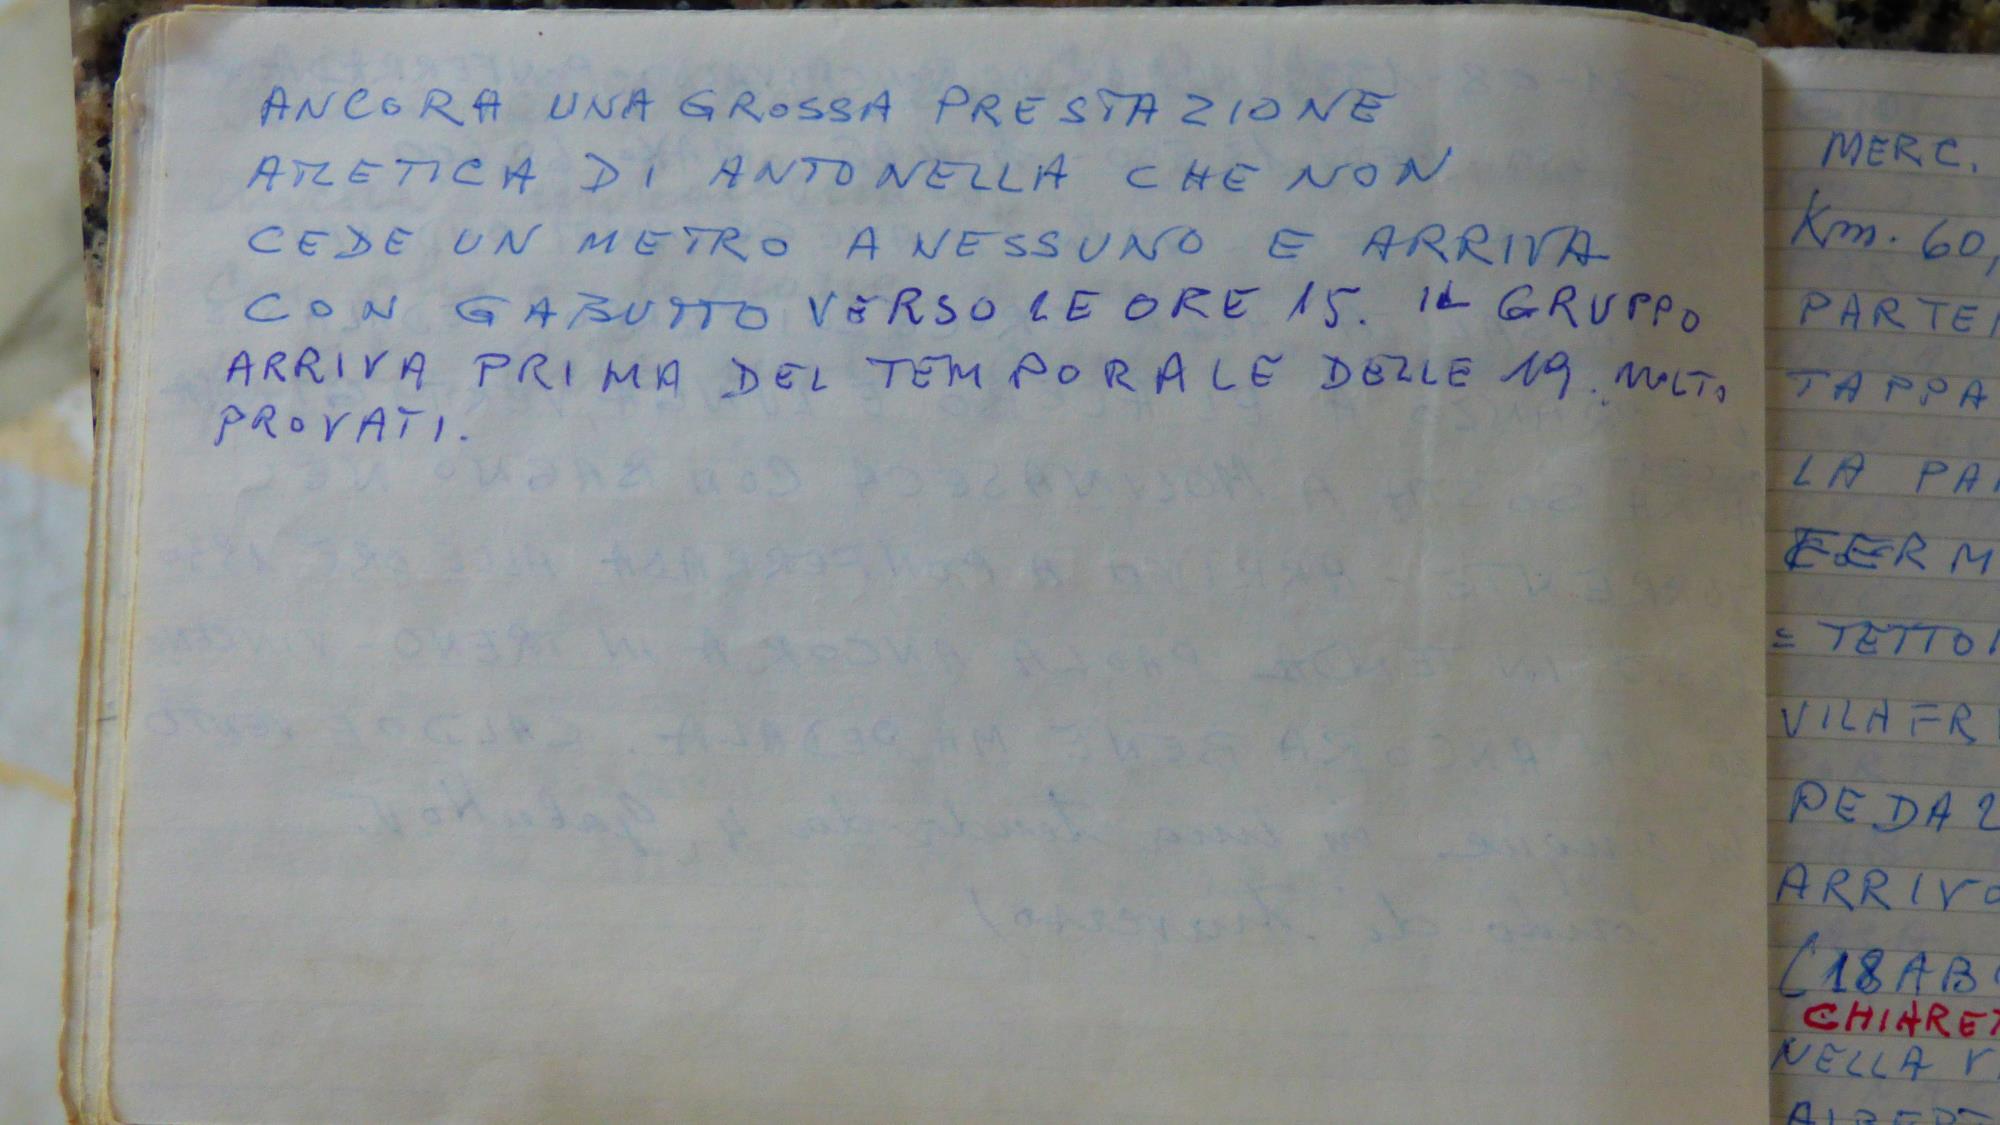 ANCORA UNA GROSSA PRESTAZIONE
ATLETICA DI ANTONELLA CHE NON
CEDE UN METRO A NESSUNO E ARRIVA
CON GABUTTO VERSO LE ORE 15. IL GRUPPO
ARRIVA PRIMA DEL TEMPORALE DELLE 19. MOLTO
PROVATI.
MERC.
Km. 60,
PARTE
TAPPA
LA PA
FERM
= TETTO
VILAFR
PEDA
ARRIVO
(18 AB
CHIARE
NELLA V